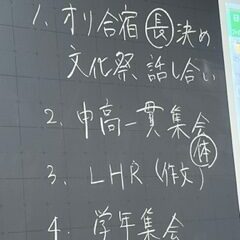 1. オリ合宿 長 決め
文化祭 話し合い
2. 中高一貫集会
体
3. LHR (作文)
4. 学年集会